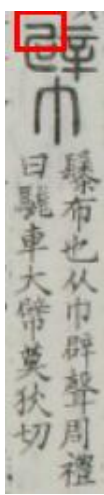 幦
䰍布也从巾辟聲周禮
曰駹車大幦莫狄切